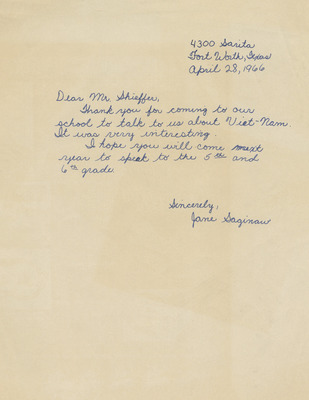 4300 Sarita
Fort Worth, Texas
April 28, 1966
Dear Mr. Shieffer,
Thank you for coming to our
school to talk to us about Viet-Nam.
It was very interesting.
I hope you will come next
year to speak to the 5th and
6th grade.
Sincerely,
Jane Saginaw